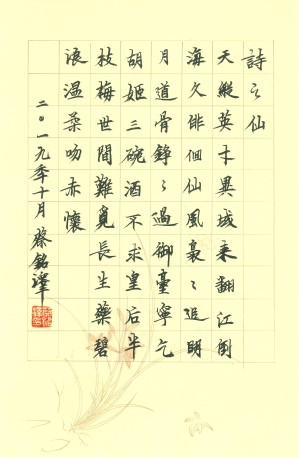 詩之仙
天縱英才異域來翻江倒
海久俳徊仙風裊々追明
月道骨錚々過御臺寧乞
胡姬三碗酒不求皇后半
枝梅世間難覓長生藥碧
浪溫柔吻赤懷
二〇一九年十月 蔡銘澤